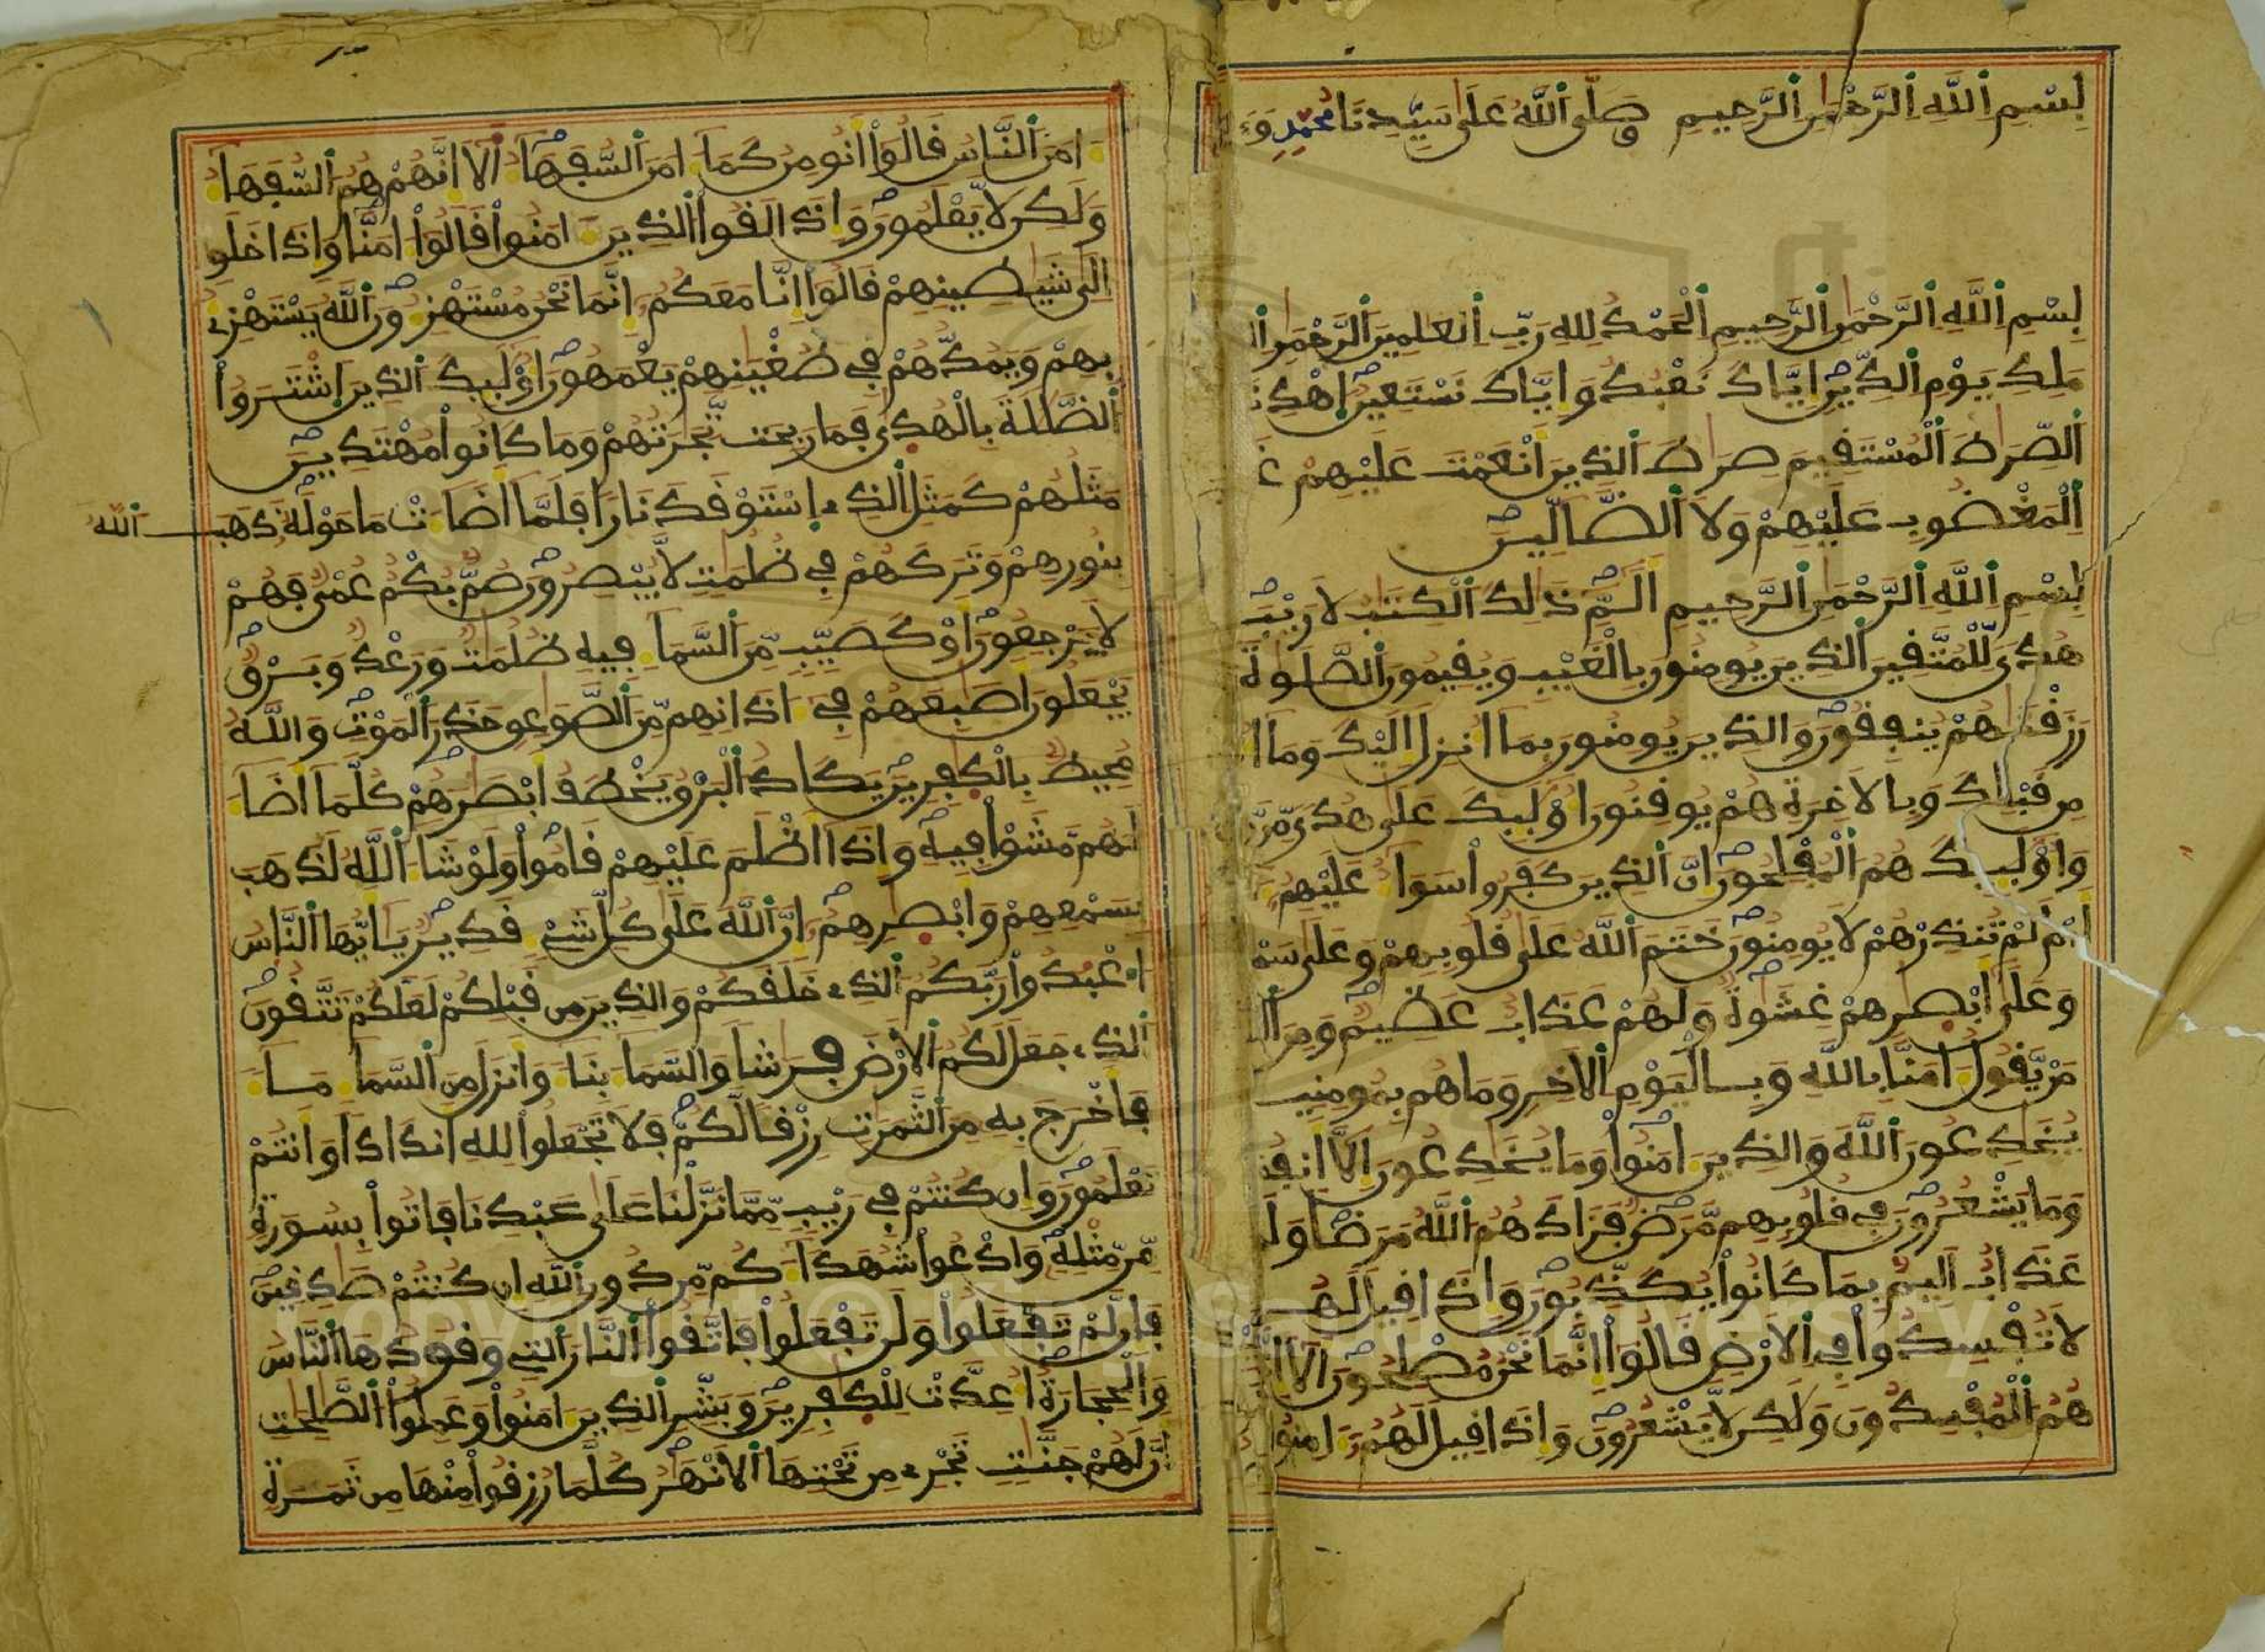 بِسْمِ اِللَّهِ اِلرَّحْمَٰنِ اِلرَّحِيمِ وَصَلَّى اَللَّهُ عَلَىٰ سَيِّدِنَا مُحَمَّدٍ وَءَ
بِسْمِ اِللَّهِ اِلرَّحْمَٰنِ اِلرَّحِيمِ اِلْحَمْدُ لِلهِ رَبِّ اِلْعَٰلَمِينَ اَلرَّحْمَٰنِ اِ
مَلِكِ يَوْمِ اِلدِّينِ إِيَّاكَ نَعْبُدُ وَإِيَّاكَ نَسْتَعِينُ اَهْدِنَ
اَلصِّرَٰطَ اَلْمُسْتَقِيمَ صِرَٰطَ اَلذِينَ أَنْعَمْتَ عَلَيْهِمْ غَ
اِلْمَغْضُوبِ عَلَيْهِمْ وَلَا اَلضَّآلِّينَ
بِسْمِ اِللَّهِ اِلرَّحْمَٰنِ اِلرَّحِيمِ أَلَٓمِّٓ ذَٰلِكَ اَلْكِتَٰبُ لَا رَيْبَ
هُدىً لِّلْمُتَّقِينَ اَلذِينَ يُومِنُونَ بِالْغَيْبِ وَيُقِيمُونَ اَلصَّلَوٰةَ
رَزَقْنَٰهُمْ يُنفِقُونَ وَالذِينَ يُومِنُونَ بِمَآ أُنزِلَ إِلَيْكَ وَمَآ أُ
مِن قَبْلِكَ وَبِالَاخِرَةِ هُمْ يُوقِنُونَ أُوْلَٰٓئِكَ عَلَىٰ هُدىً مِّن رَّ
وَأُوْلَٰٓئِكَ هُمُ اُلْمُفْلِحُونَ إِنَّ اَلذِينَ كَفَرُواْ سَوَآءٌ عَلَيْهِمُ
أَمْ لَمْ تُنذِرْهُمْ لَا يُومِنُونَ خَتَمَ اَللَّهُ عَلَىٰ قُلُوبِهِمْ وَعَلَىٰ سَمْ
وَعَلَىٰٓ أَبْصَٰرِهِمْ غِشَٰوَةٌ وَلَهُمْ عَذَابٌ عَظِيمٌ وَمِنَ اَل
مَنْ يَّقُولُ ءَامَنَّا بِاللَّهِ وَبِالْيَوْمِ اِلَاخِرِ وَمَا هُم بِمُومِنِينَ
يُخَٰدِعُونَ اَللَّهَ وَالذِينَ ءَامَنُواْ وَمَا يُخَٰدِعُونَ إِلَّآ أَنفُ
وَمَا يَشْعُرُونَ فِي قُلُوبِهِم مَّرَضٌ فَزَادَهُمُ اُللَّهُ مَرَضاً وَلَ
عَذَابٌ أَلِيمٌ بِمَا كَانُواْ يُكَذِّبُونَ وَإِذَا قِيلَ لَهُمْ
لَا تُفْسِدُواْ فِي اِلَارْضِ قَالُوٓاْ إِنَّمَا نَحْنُ مُصْلِحُونَ أَلَآ إِ
هُمُ اُلْمُفْسِدُونَ وَلَٰكِن لَّا يَشْعُرُونَ وَإِذَا قِيلَ لَهُمُ ءَامِنُوا
ءَامَنَ اَلنَّاسُ قَالُوٓاْ أَنُومِنُ كَمَآ ءَامَنَ اَلسُّفَهَآءُ أَلَآ إِنَّهُمْ هُمُ اُلسُّفَهَآءُ
وَلَٰكِن لَّا يَعْلَمُونَ وَإِذَا لَقُواْ اُلذِينَ ءَامَنُواْ قَالُوٓاْ ءَامَنَّا وَإِذَا خَلَو
اِلَىٰ شَيَٰطِينِهِمْ قَالُوٓاْ إِنَّا مَعَكُمُ إِنَّمَا نَحْنُ مُسْتَهْزِءُونَ اَللَّهُ يَسْتَهْزِئُ
بِهِمْ وَيَمُدُّهُمْ فِي طُغْيَٰنِهِمْ يَعْمَهُونَ أُوْلَٰٓئِكَ اَلذِينَ اَشْتَرَوُاْ
اُلضَّلَٰلَةَ بِالْهُدَىٰ فَمَا رَبِحَت تِّجَٰرَتُهُمْ وَمَا كَانُواْ مُهْتَدِينَ
مَثَلُهُمْ كَمَثَلِ اِلذِي اِسْتَوْقَدَ نَاراً فَلَمَّآ أَضَآءَتْ مَا حَوْلَهُۥ ذَهَبَ اَللَّهُ
بِنُورِهِمْ وَتَرَكَهُمْ فِي ظُلُمَٰتٍ لَّا يُبْصِرُونَ صُمٌّ بُكْمٌ عُمْيٌ فَهُمْ
لَا يَرْجِعُونَ أَوْ كَصَيِّبٍ مِّنَ اَلسَّمَآءِ فِيهِ ظُلُمَٰتٌ وَرَعْدٌ وَبَرْقٌ
يَجْعَلُونَ أَصَٰبِعَهُمْ فِي ءَاذَانِهِم مِّنَ اَلصَّوَٰعِقِ حَذَرَ اَلْمَوْتِ وَاللَّهُ
مُحِيطٌ بِالْكٰفِرِينَ يَكَادُ اُلْبَرْقُ يَخْطَفُ أَبْصَٰرَهُمْ كُلَّمَآ أَضَآءَ
لَهُم مَّشَوْاْ فِيهِ وَإِذَآ أَظْلَمَ عَلَيْهِمْ قَامُواْ وَلَوْ شَآءَ اَللَّهُ لَذَهَبَ
بِسَمْعِهِمْ وَأَبْصَٰرِهِمُ إِنَّ اَللَّهَ عَلَىٰ كُلِّ شَيْءٍ قَدِيرٌ يَٰٓأَيُّهَا اَلنَّاسُ
اُعْبُدُواْ رَبَّكُمُ اُلذِي خَلَقَكُمْ وَالذِينَ مِن قَبْلِكُمْ لَعَلَّكُمْ تَتَّقُونَ
اَلذِي جَعَلَ لَكُمُ اُلَارْضَ فِرَٰشاً وَالسَّمَآءَ بِنَآءً وَأَنزَلَ مِنَ اَلسَّمَآءِ مَآءً
فَأَخْرَجَ بِهِ مِنَ اَلثَّمَرَٰتِ رِزْقاً لَّكُمْ فَلَا تَجْعَلُواْ لِلهِ أَندَاداً وَأَنتُمْ
تَعْلَمُونَ وَإِن كُنتُمْ فِي رَيْبٍ مِّمَّا نَزَّلْنَا عَلَىٰ عَبْدِنَا فَاتُواْ بِسُورَةٍ
مِّن مِّثْلِهِ وَادْعُواْ شُهَدَآءَكُم مِّن دُونِ اِللَّهِ إِن كُنتُمْ صَٰدِقِينَ
فَإِن لَّمْ تَفْعَلُواْ وَلَن تَفْعَلُواْ فَاتَّقُواْ اُلنَّارَ اَلتِي وَقُودُهَا اَلنَّاسُ
وَالْحِجَارَةُ أُعِدَّتْ لِلْكٰفِرِينَ وَبَشِّرِ اِلذِينَ ءَامَنُواْ وَعَمِلُواْ اُلصَّٰلِحَٰتِ
أَنَّ لَهُمْ جَنَّٰتٍ تَجْرِي مِن تَحْتِهَا اَلَانْهَٰرُ كُلَّمَا رُزِقُواْ مِنْهَا مِن ثَمَرَةٍ